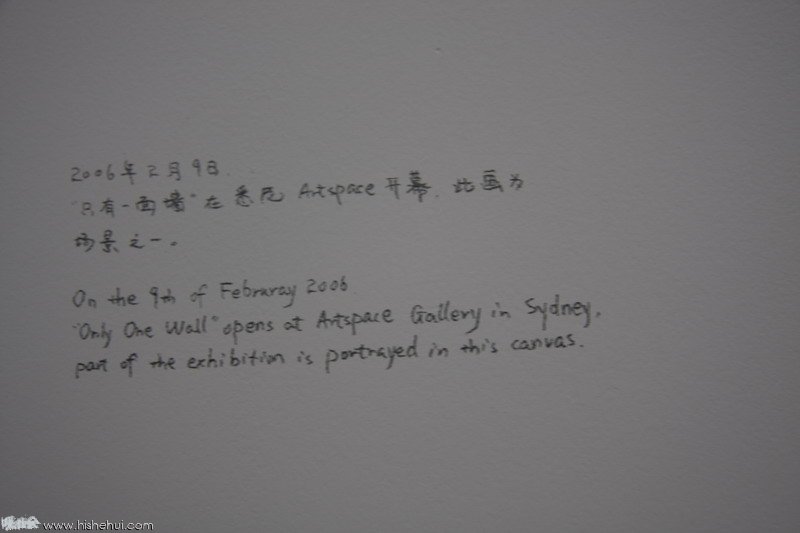 2006年2月9日.
"只有一面墙"在悉尼 Artspace 开幕. 此画为
场景之一。
On the 9th of Februray 2006
"Only One Wall" opens at Artspace Gallery in Sydney.
part of the exhibition is portrayed in this canvas.
www.hishehui.com